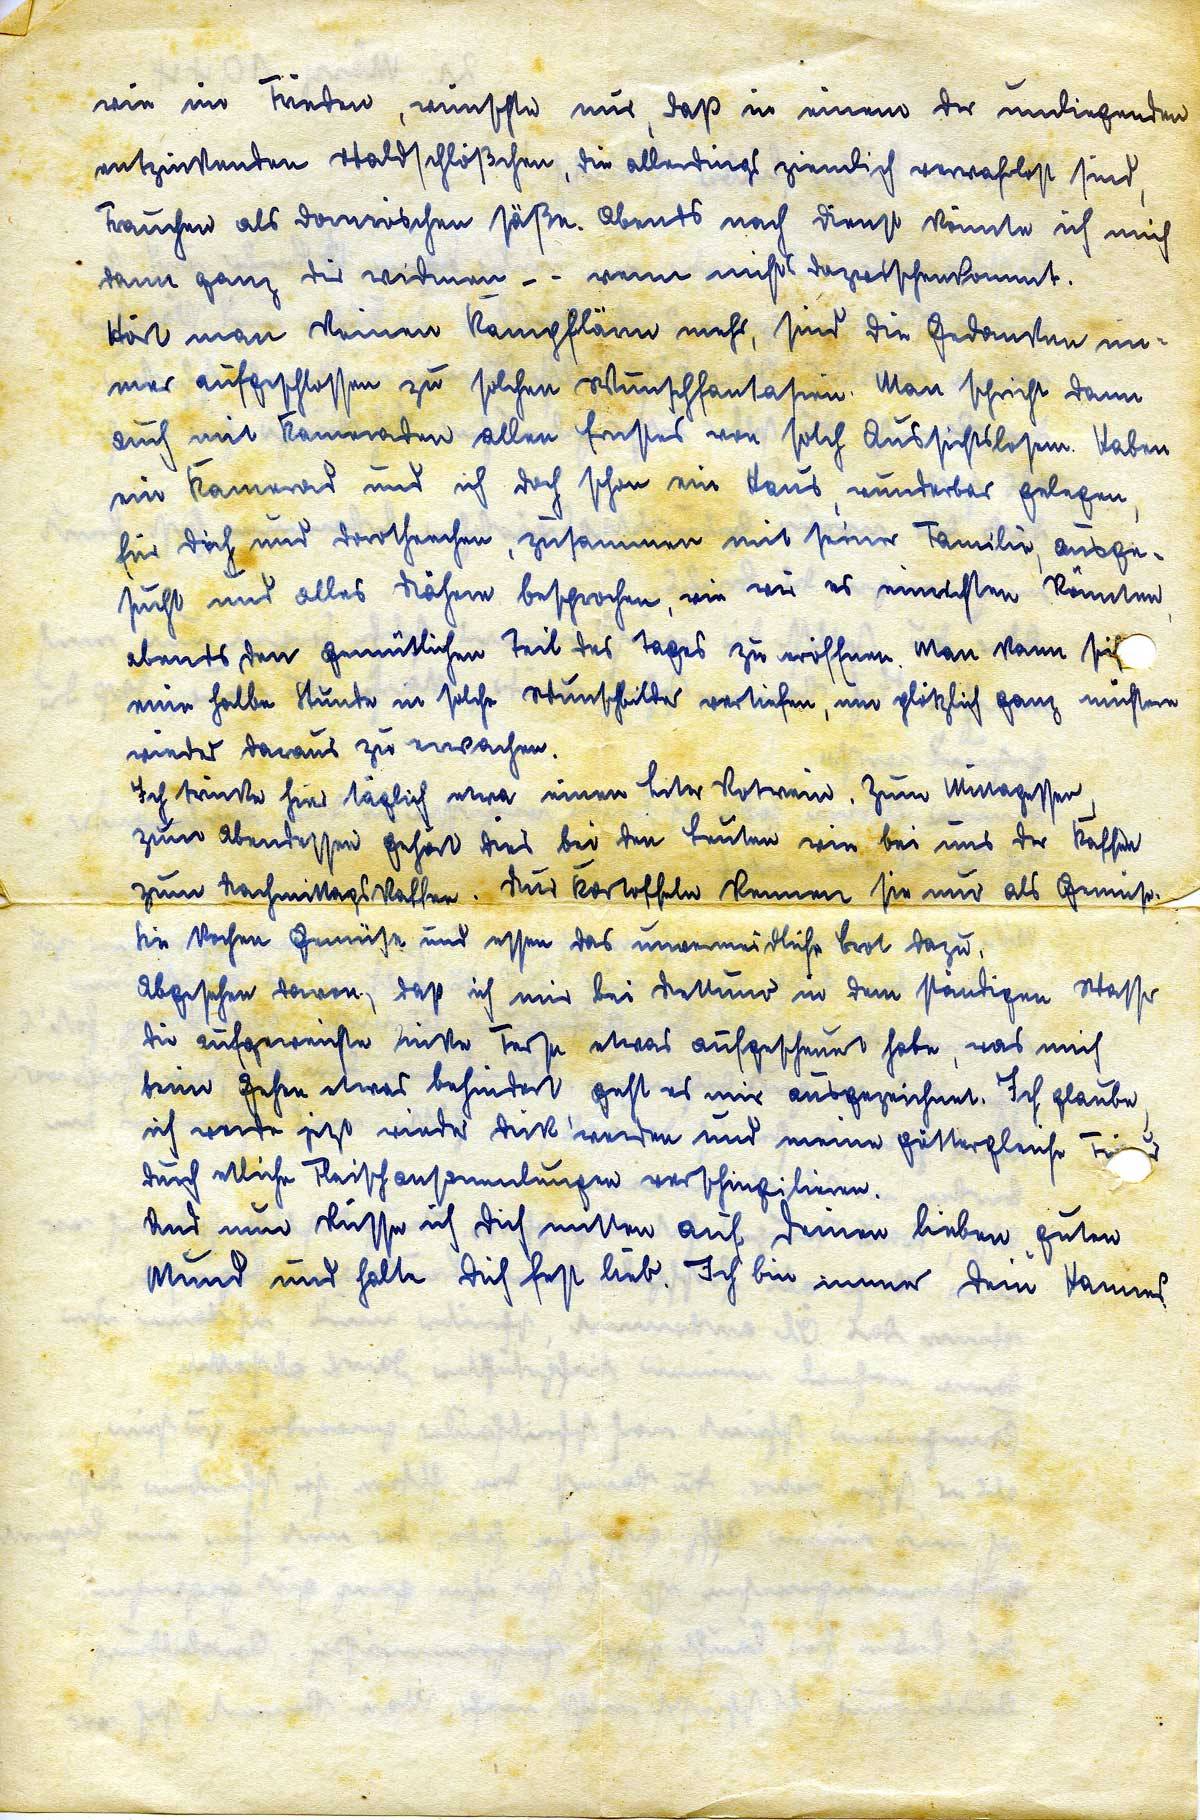 wie im Frieden, wünschte nur, daß in einem der umliegenden
entzückenden Waldschlößchen, die allerdings ziemlich verwahrlost sind,
Frauchen als Dornröschen säße. Abends nach Dienst könnte ich mich
dann ganz dir widmen - - wenn nichts dazwischenkommt.
Hört man keinen Kampflärm mehr, sind die Gedanken im-
mer aufgeschlossen zu solchen Wunschfantasien. Man spricht dann
auch mit Kameraden allen Ernstes von solch Aussichtslosem. Haben
ein Kamerad und ich doch schon ein Haus, wunderbar gelegen,
für Dich und Dorotheechen, zusammen mit seiner Familie, ausge-
sucht und alles Nähere besprochen, wie wir es einrichten könnten,
abends den gemütlichen Teil des Tages zu eröffnen. Man kann sich
eine halbe Stunde in solche Wunschbilder vertiefen, um plötzlich ganz nüchtern
wieder daraus zu erwachen.
Ich trinke hier täglich etwa einen Liter Rotwein. Zum Mittagessen,
zum Abendessen gehört dies bei den Leuten wie bei uns der Kaffee
zum Nachmittagskaffee. Nur Kartoffeln kennen sie nur als Gemüse.
Sie kochen Gemüse und essen das unvermeidliche Brot dazu.
Abgesehen davon, daß ich mir bei Nettuno in dem ständigen Wasser
die aufgeweichte linke Ferse etwas aufgescheuert habe, was mich
beim Gehen etwas behindert geht es mir ausgezeichnet. Ich glaube,
ich werde jetzt wieder dick werden und meine göttergleiche
durch etliche Fleischansammlungen verschimpfilieren.
Und nun küsse ich Dich mitten auf Deinen lieben guten
Mund und halte Dich fest lieb. Ich bin immer Dein Hannes.